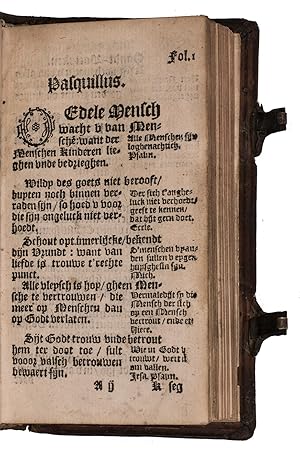 Fol.1
Pasquillus.
O Edele Mensch
wacht v van Men-
schē: want der
Menschen kinderen lie-
ghen vnde bedrieghen.
Alle Menschen sijn
loghenachtich,
Psalm.
Wildy des goets niet berooft/
buyten noch binnen ver-
raden sijn/ so hoed v voor
die sijn ongeluck niet ver-
hoedt.
Der sich
geluck niet verhoedt/
geeft te kennen/
dat hijt gern doet.
Eccle.
Schout opt innerlijcke/ bekendt
dijn Vrundt: want van
liefde is trouwe t'rechte
punct.
D'menschen vyan-
den sullen v eygen
huysghesin sijn.
Mich.
Alle vleysch is hoy/ gheen Men-
sche te vertrouwen/ die
meer op Menschen dan
op Godt verlaten.
Vermaledijt sy die
Mensch der sich
op een Mensch
vertrout/ ende etc
Hiere.
Sijt Godt trouw vnde betrout
hem ter doot toe/ sult
vooor valsch betrouwen
bewaert sijn.
Wie in Godt v
trouwt/ wert n
om vallen.
Jesa. Psalm.
A ij
K seg